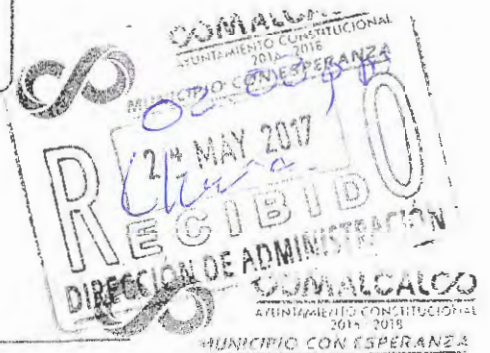 COMALCALCO
AYUNTAMIENTO CONSTITUCIONAL
2016 - 2018
MUNICIPIO CON ESPERANZA
24 MAY 2017
RECIBIDO
DIRECCIÓN DE ADMINISTRACIÓN
COMALCALCO
AYUNTAMIENTO CONSTITUCIONAL
2016 - 2018
MUNICIPIO CON ESPERANZA